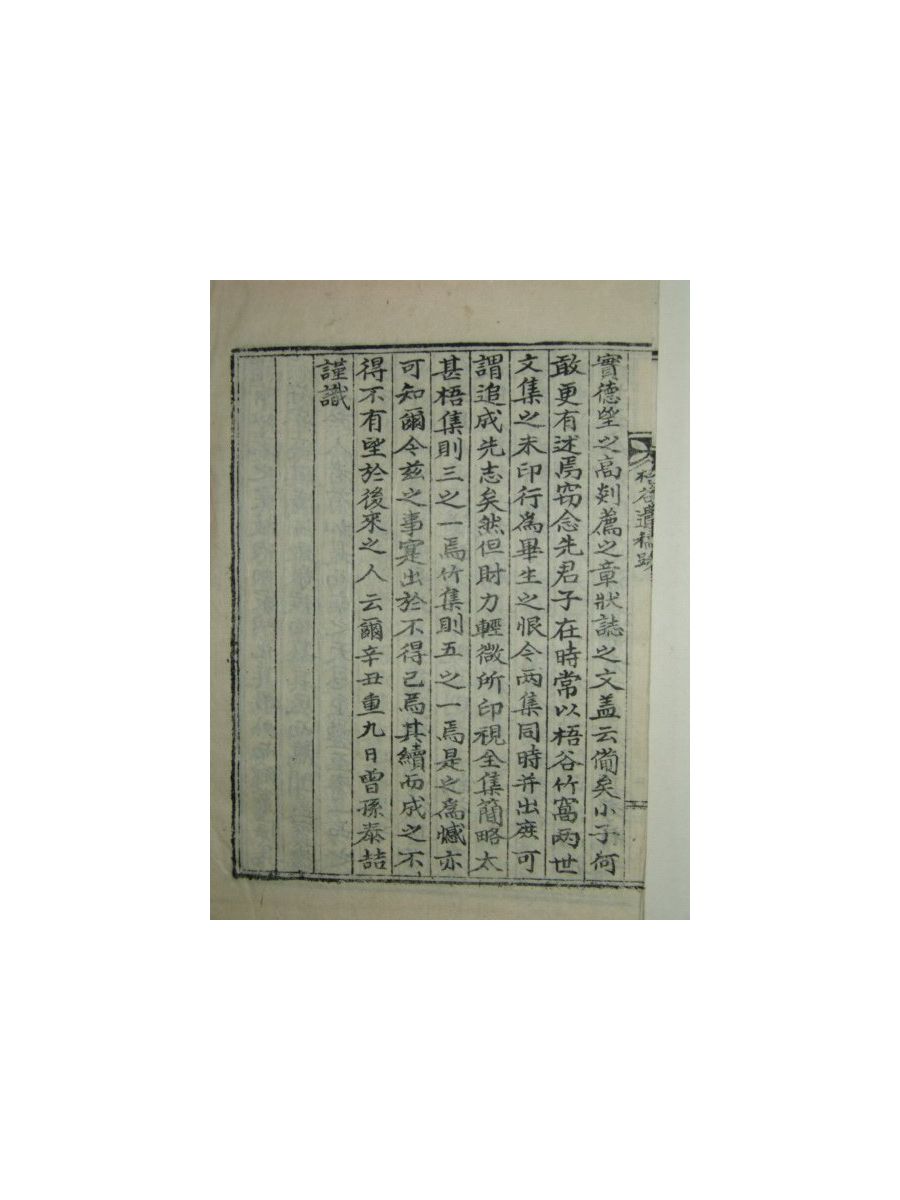 梧谷遺稿跋
實德望之高剡薦之章狀誌之文盖云備矣小子何
敢更有述焉窃念先君子在時常以梧谷竹窩两世
文集之未印行為畢生之恨今两集同時并出庶可
謂追成先志矣然但財力輕微所印視全集簡略太
甚梧集則三之一焉竹集則五之一焉是之為憾亦
可知爾今兹之事寔出於不得已焉其續而成之不
得不有望於後來之人云爾辛丑重九日曾孫泰喆
謹識